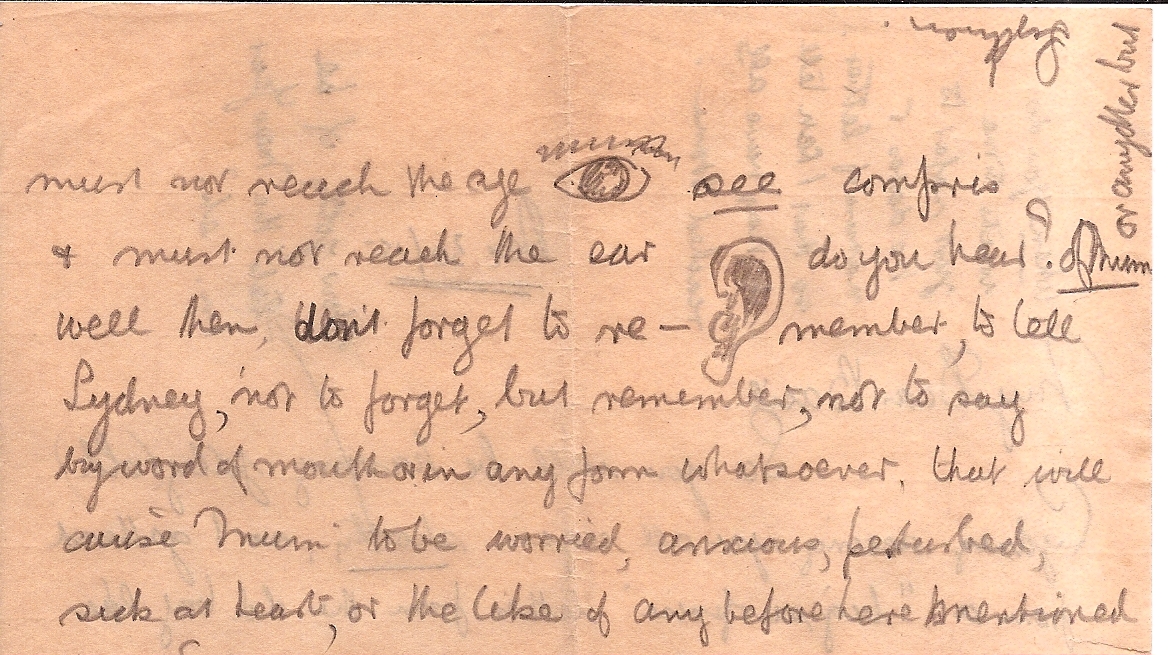 must not reach the age see compris
& must not reach the ear do you hear? of Mum
well then, don't forget to re- member, to tell
Sydney, not to forget, but remember, not to say
by word of mouth or in any form whatsoever, that will
cause Mum to be worried, anxious, perturbed,
sick at heart, or the like of any before here mentioned
or any other but